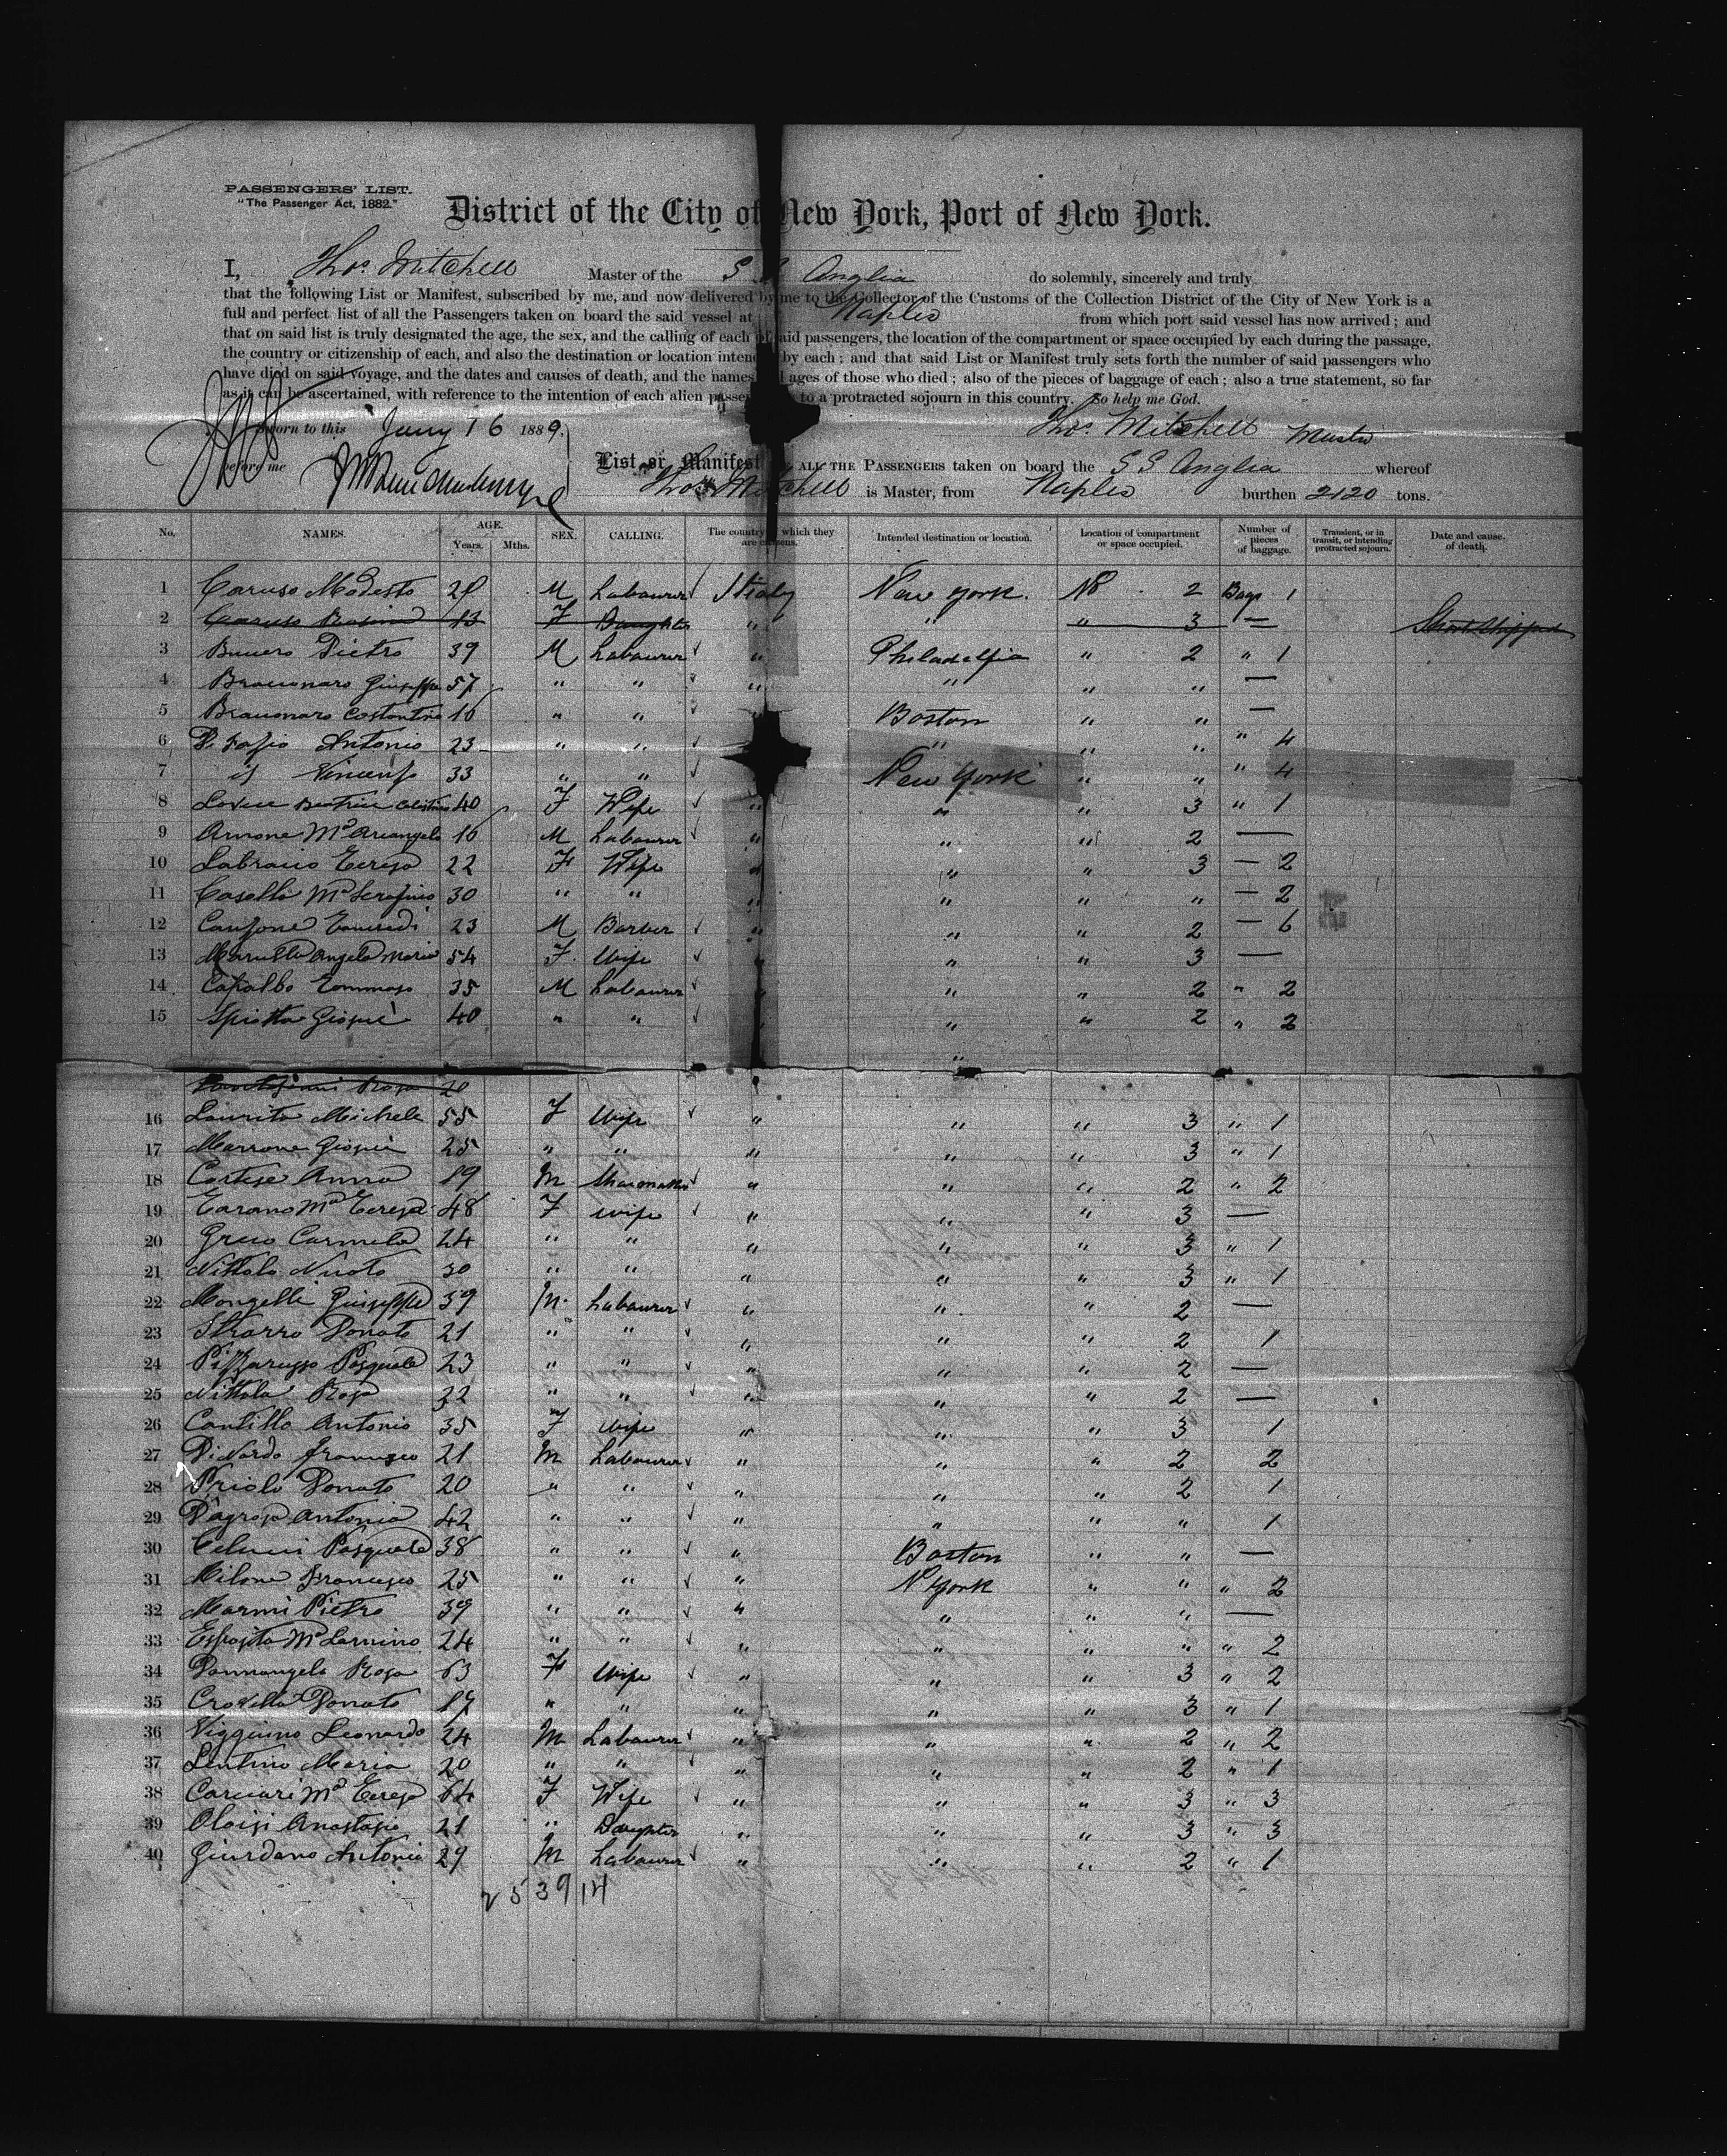 PASSENGERS' LIST.
"The Passenger Act, 1882."
District of the City of New York, Port of New York.
I, Thos. Mitchell Master of the S S Anglia do solemnly, sincerely and truly
that the following List or Manifest, subscribed by me, and now delivered by me to the Collector of the Customs of the Collection District of the City of New York is a
full and perfect list of all the Passengers taken on board the said vessel at Naples from which port said vessel has now arrived; and
that on said list is truly designated the age, the sex, and the calling of each of said passengers, the location of the compartment or space occupied by each during the passage,
the country or citizenship of each, and also the destination or location intended by each; and that said List or Manifest truly sets forth the number of said passengers who
have died on said voyage, and the dates and causes of death, and the names and ages of those who died; also of the pieces of baggage of each; also a true statement, so far
as it can be ascertained, with reference to the intention of each alien passenger to a protracted sojourn in this country. So help me God.
Sworn to this Jany 16 1889. Thos. Mitchell Master
before me
List or Manifest ALL THE PASSENGERS taken on board the S S Anglia whereof
Thos. Mitchell is Master, from Naples burthen 2120 tons.
No. NAMES. AGE. Years. Mths. SEX. CALLING. The country of which they are citizens. Intended destination or location. Location of compartment or space occupied. Number of pieces of baggage. Transient, or in transit, or intending protracted sojourn. Date and cause of death.
1 Caruso Modesto M Labourer Italy New York. No 2 Bags 1
2 Caruso Rosina 13 F Daughter " " " 3 — Short Shipped
3 Pietro 39 M Labourer " Philadelfia " 2 " 1
4 Giuseppe 57 " " " " " " —
5 Costantino 16 " " Boston " " —
6 Di Fasio Antonio 23 " " " " " " 4
7 id Vincenzo 33 " " New York " " " 4
8 40 F Wife " " " 3 " 1
9 Arnone Ma Arcangelo 16 M Labourer " " " 2 —
10 Teresa 22 F Wife " " " 3 — 2
11 Casella Ma Serafina 30 " " " " " " — 2
12 Canzone 23 M Barber " " " 2 — 6
13 Angela Maria 54 F Wife " " " 3 —
14 Capalbo Tommaso 35 M Labourer " " " 2 " 2
15 Spiotta Giosuè 40 " " " " " 2 " 2
Rosa
16 Laurita Michele 55 F Wife " " " 3 " 1
17 Marrone Giosuè 25 " " " " " 3 " 1
18 Cortese Anna 19 M Shoemaker " " " 2 " 2
19 Tarano Ma Teresa 48 F Wife " " " 3 —
20 Greco Carmela 24 " " " " " 3 " 1
21 Nittolo 30 " " " " " 3 " 1
22 Mongelli Giuseppe 39 M. Labourer " " " 2 —
23 Donato 21 " " " " " 2 1
24 Pizzarusso Pasquale 23 " " " " " 2 —
25 Nittola Rosa 32 " " " " " 2 —
26 Cantillo Antonio 35 F Wife " " " 3 1
27 DiNardo Francesco 21 M Labourer " " " 2 2
28 Priolo Donato 20 " " " " " 2 1
29 D'agrosa Antonio 42 " " " " " " 1
30 Pasquale 38 " " " Boston " " —
31 Milone Francesco 25 " " " N York " " " 2
32 Marmi Pietro 39 " " " " " " —
33 Esposito Ma 24 " " " " " " " 2
34 Donnangelo Rosa 63 F Wife " " " 3 " 2
35 Donato 17 " " " " " 3 " 1
36 Viggiano Leonardo 24 M Labourer " " " 2 " 2
37 Lentino Maria 20 " " " " " 2 " 1
38 Ma Teresa 64 F Wife " " " 3 " 3
39 Oloisi Anastasia 21 " Daughter " " " 3 " 3
40 Giordano Antonio 29 M Labourer " " " 2 " 1
25 39 14